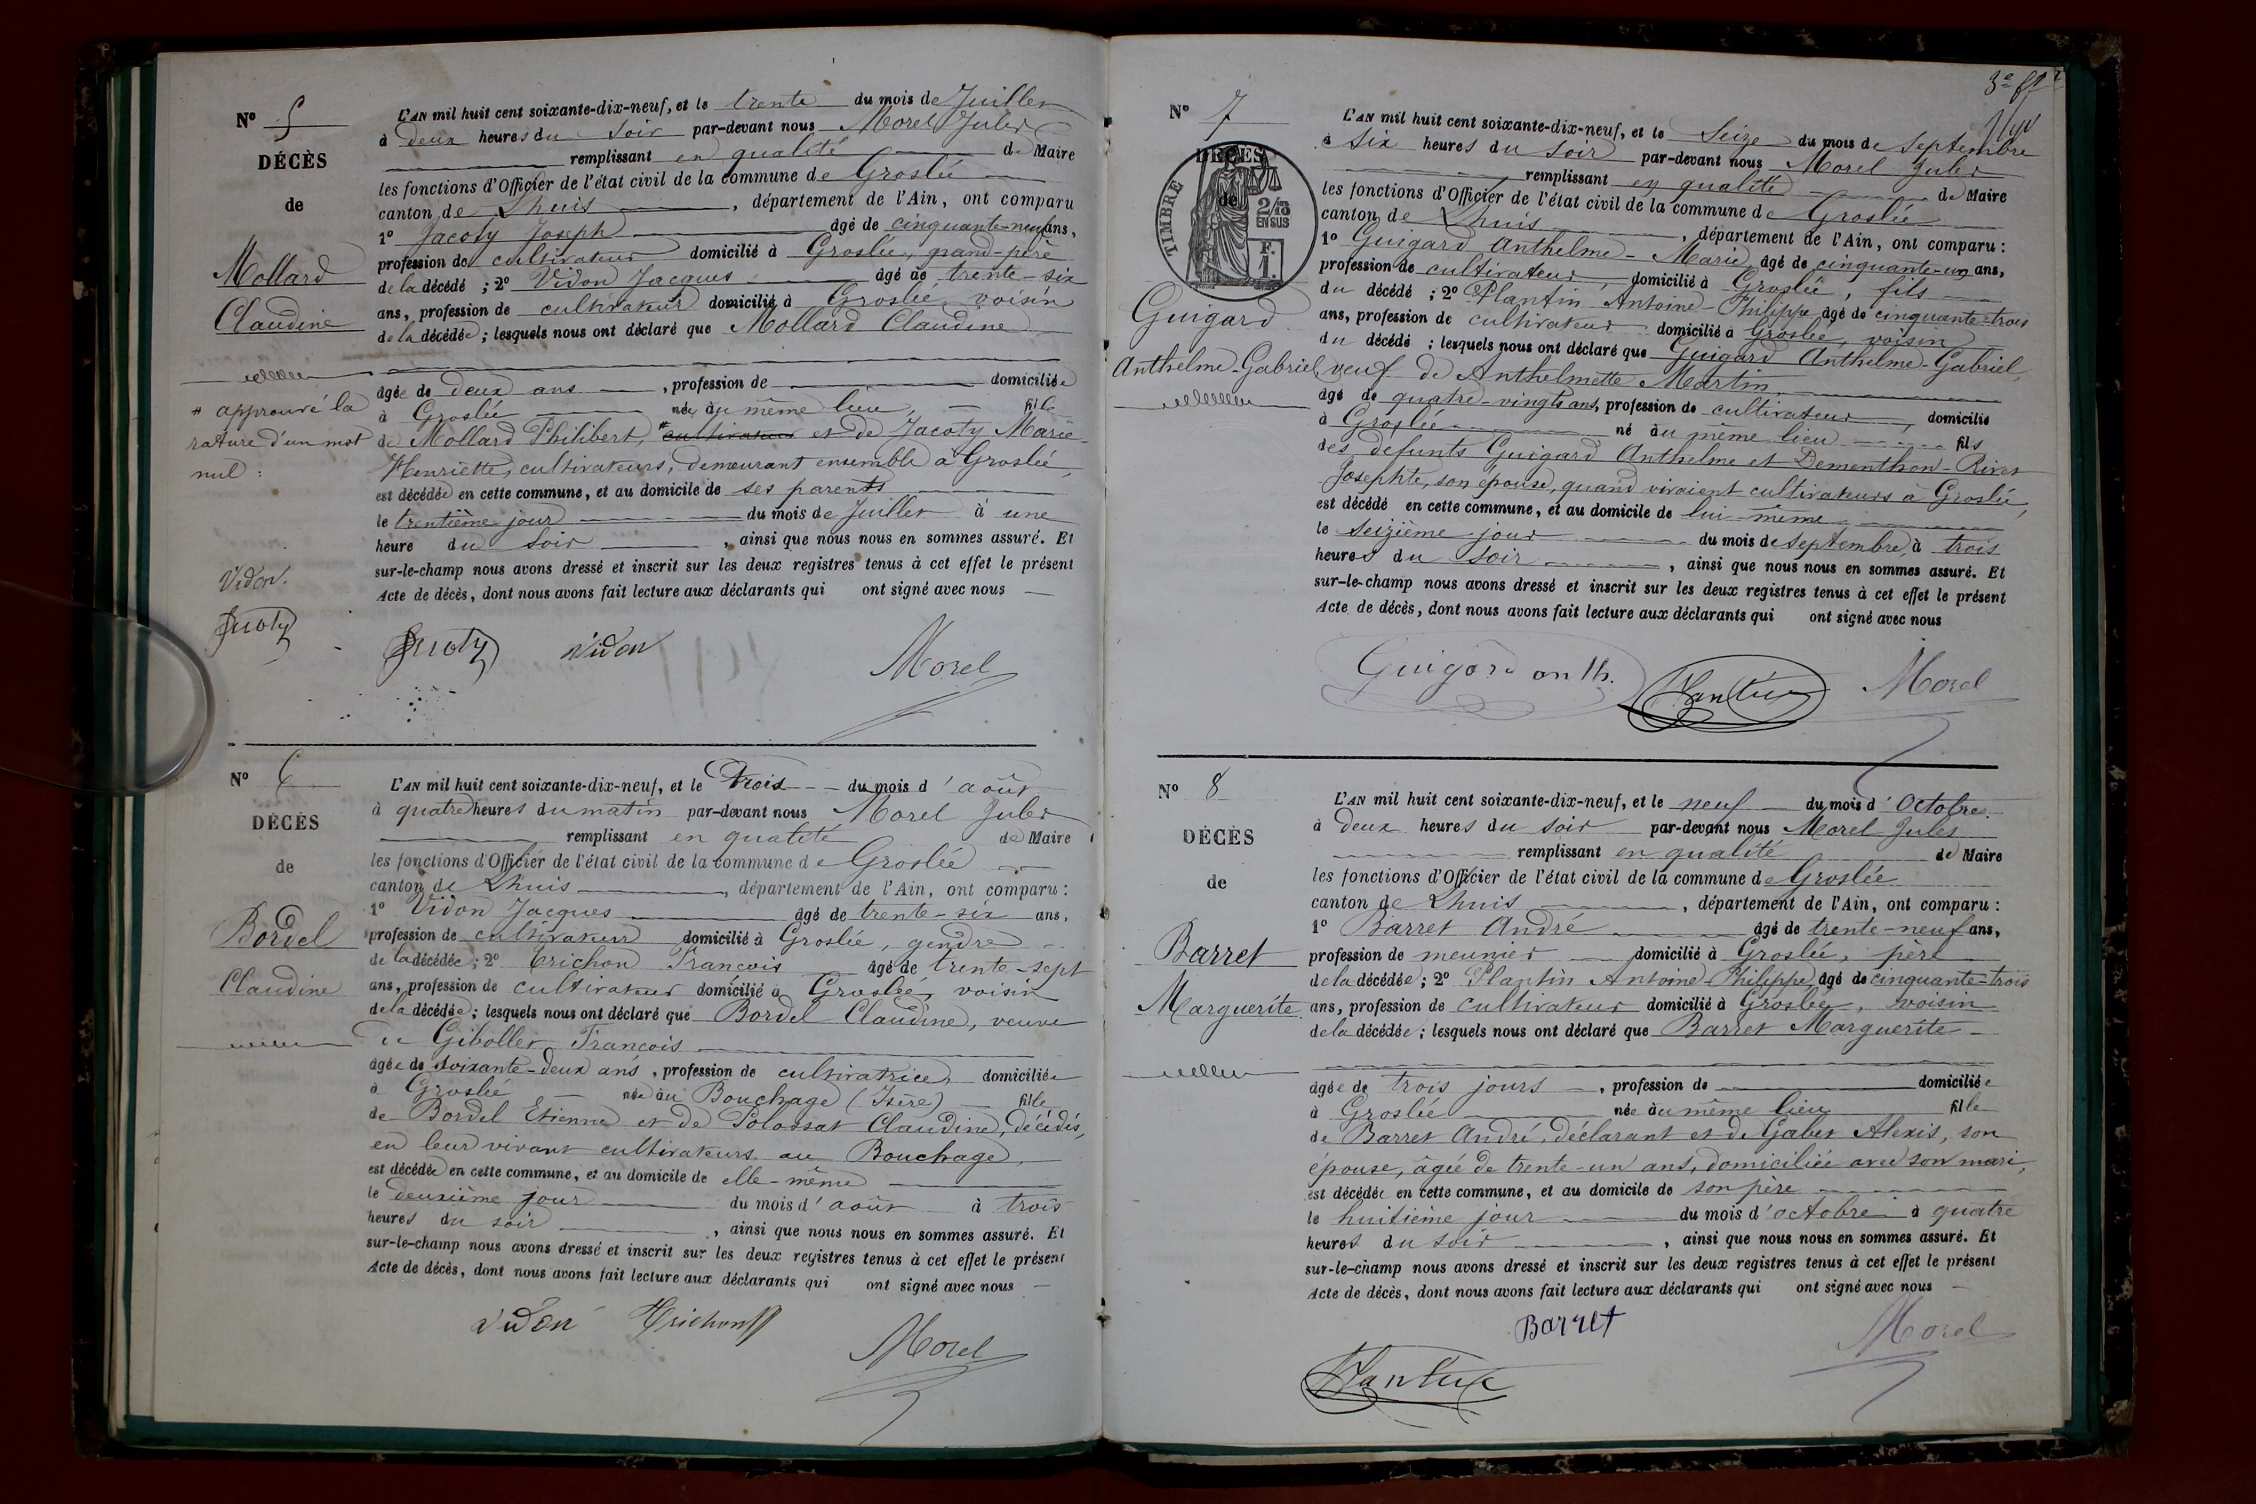 N° 5
DÉCÈS
de
Mollard
Claudine
# approuvé la
rature d'un mot
nul :
Vidon.
Jacoty
L'AN mil huit cent soixante-dix-neuf, et le trente du mois de Juillet
à deux heures du soir par-devant nous Morel Jules
remplissant en qualité de Maire
les fonctions d'Officier de l'état civil de la commune de Groslée
canton de Lhuis, département de l'Ain, ont comparu
1° Jacoty Joseph âgé de cinquante-neuf ans,
profession de cultivateur domicilié à Groslée, grand-père
de la décédé ; 2° Vidon Jacques âgé de trente-six
ans, profession de cultivateur domicilié à Groslée, voisin
de la décédée ; lesquels nous ont déclaré que Mollard Claudine
âgée de deux ans, profession de domiciliée
à Groslée née au même lieu, fille
de Mollard Philibert, # cultivateur et de Jacoty Marie-
Henriette, cultivateurs, demeurant ensemble à Groslée,
est décédée en cette commune, et au domicile de ses parents
le trentième jour du mois de Juillet à une
heure du soir, ainsi que nous nous en sommes assuré. Et
sur-le-champ nous avons dressé et inscrit sur les deux registres tenus à cet effet le présent
Acte de décès, dont nous avons fait lecture aux déclarants qui ont signé avec nous
Jacoty Vidon Morel
N° 6
DÉCÈS
de
Bordel
Claudine
L'AN mil huit cent soixante-dix-neuf, et le trois du mois d'août
à quatre heures du matin par-devant nous Morel Jules
remplissant en qualité de Maire
les fonctions d'Officier de l'état civil de la commune de Groslée
canton de Lhuis, département de l'Ain, ont comparu :
1° Vidon Jacques âgé de trente-six ans,
profession de cultivateur domicilié à Groslée, gendre
de la décédée ; 2° Trichon François âgé de trente-sept
ans, profession de cultivateur domicilié à Groslée, voisin
de la décédée ; lesquels nous ont déclaré que Bordel Claudine, veuve
de Gibollet François
âgée de soixante-deux ans, profession de cultivatrice, domiciliée
à Groslée née au Bouchage (Isère) fille
de Bordel Etienne et de Polossat Claudine, décédés,
en leur vivant cultivateurs au Bouchage,
est décédée en cette commune, et au domicile de elle-même
le deuxième jour du mois d'août à trois
heures du soir, ainsi que nous nous en sommes assuré. Et
sur-le-champ nous avons dressé et inscrit sur les deux registres tenus à cet effet le présent
Acte de décès, dont nous avons fait lecture aux déclarants qui ont signé avec nous
Vidon Trichon Morel
3e
N° 7
DÉCÈS
de
TIMBRE
2/10
EN SUS
F.
1.
Guigard
Anthelme-Gabriel
L'AN mil huit cent soixante-dix-neuf, et le Seize du mois de septembre
à six heures du soir par-devant nous Morel Jules
remplissant en qualité de Maire
les fonctions d'Officier de l'état civil de la commune de Groslée
canton de Lhuis, département de l'Ain, ont comparu :
1° Guigard Anthelme-Marie, âgé de cinquante-un ans,
profession de cultivateur, domicilié à Groslée, fils
du décédé ; 2° Plantin Antoine-Philippe, âgé de cinquante-trois
ans, profession de cultivateur domicilié à Groslée, voisin
du décédé ; lesquels nous ont déclaré que Guigard Anthelme-Gabriel,
veuf de Anthelmette Martin
âgé de quatre-vingts ans, profession de cultivateur, domicilié
à Groslée né au même lieu fils
des défunts Guigard Anthelme et Dementhon-Rivet
Josephte, son épouse, quand vivaient cultivateurs à Groslée,
est décédé en cette commune, et au domicile de lui-même
le seizième jour du mois de septembre à trois
heures du soir, ainsi que nous nous en sommes assuré. Et
sur-le-champ nous avons dressé et inscrit sur les deux registres tenus à cet effet le présent
Acte de décès, dont nous avons fait lecture aux déclarants qui ont signé avec nous
Guigard anth. Plantin Morel
N° 8
DÉCÈS
de
Barret
Marguerite
L'AN mil huit cent soixante-dix-neuf, et le neuf du mois d'Octobre
à deux heures du soir par-devant nous Morel Jules
remplissant en qualité de Maire
les fonctions d'Officier de l'état civil de la commune de Groslée
canton de Lhuis, département de l'Ain, ont comparu :
1° Barret André âgé de trente-neuf ans,
profession de meunier domicilié à Groslée, père
de la décédée ; 2° Plantin Antoine-Philippe, âgé de cinquante-trois
ans, profession de cultivateur domicilié à Groslée, voisin
de la décédée ; lesquels nous ont déclaré que Barret Marguerite
âgée de trois jours, profession de domiciliée
à Groslée née au même lieu fille
de Barret André, déclarant et de Gabet Alexis, son
épouse, âgée de trente-un ans, domiciliée avec son mari,
est décédée en cette commune, et au domicile de son père
le huitième jour du mois d'octobre à quatre
heures du soir, ainsi que nous nous en sommes assuré. Et
sur-le-champ nous avons dressé et inscrit sur les deux registres tenus à cet effet le présent
Acte de décès, dont nous avons fait lecture aux déclarants qui ont signé avec nous
Barret Morel
Plantin